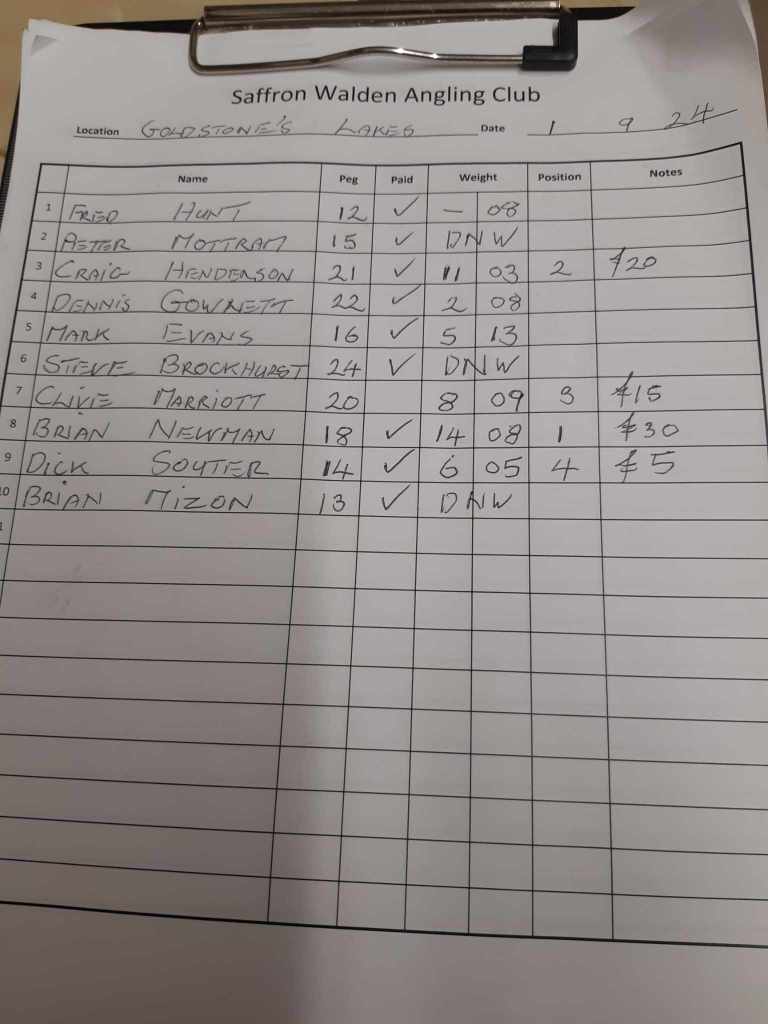 Saffron Walden Angling Club
Location GOLDSTONE'S LAKES Date 1 9 24
Name Peg Paid Weight Position Notes
1 FRED HUNT 12 ✓ — 08
2 PETER MOTTRAM 15 ✓ DNW
3 CRAIG HENDERSON 21 ✓ 11 03 2 £20
4 DENNIS GOWLETT 22 ✓ 2 08
5 MARK EVANS 16 ✓ 5 13
6 STEVE BROCKHURST 24 ✓ DNW
7 CLIVE MARRIOTT 20 8 09 3 £15
8 BRIAN NEWMAN 18 ✓ 14 08 1 £30
9 DICK SOUTER 14 ✓ 6 05 4 £5
10 BRIAN MIZON 13 ✓ DNW
1